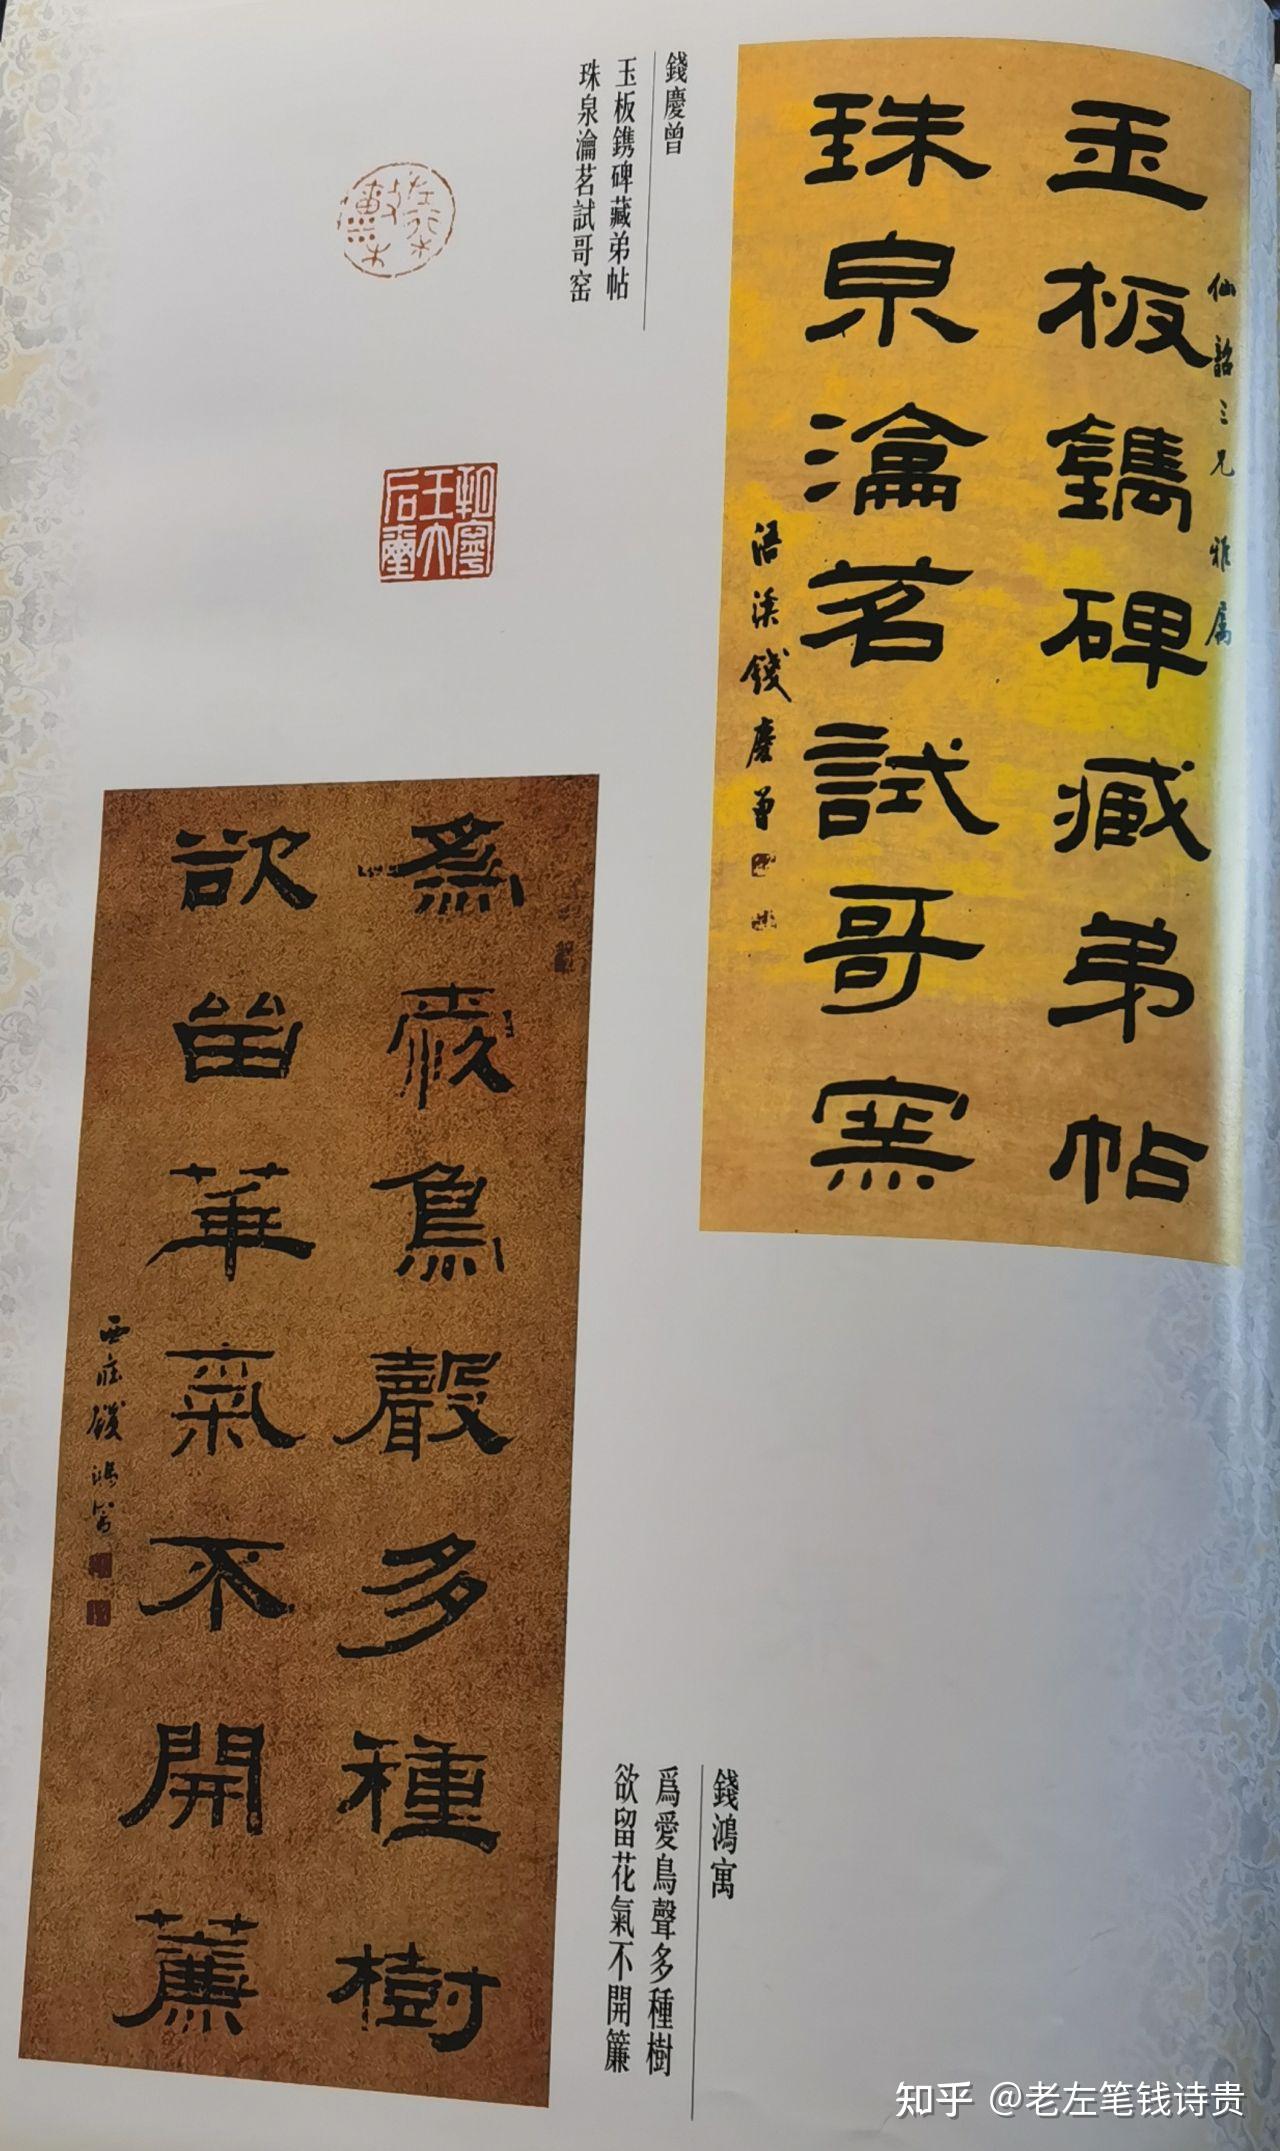 仙韶三兄雅属
玉板鐫碑藏弟帖
珠泉瀹茗試哥窑
浯溪錢慶曾
錢慶曾
玉板鐫碑藏弟帖
珠泉瀹茗試哥窑
為愛鳥聲多種樹
欲留華氣不開薕
西庄錢鴻寓
錢鴻寓
爲愛鳥聲多種樹
欲留花氣不開簾
知乎 @老左笔钱诗贵